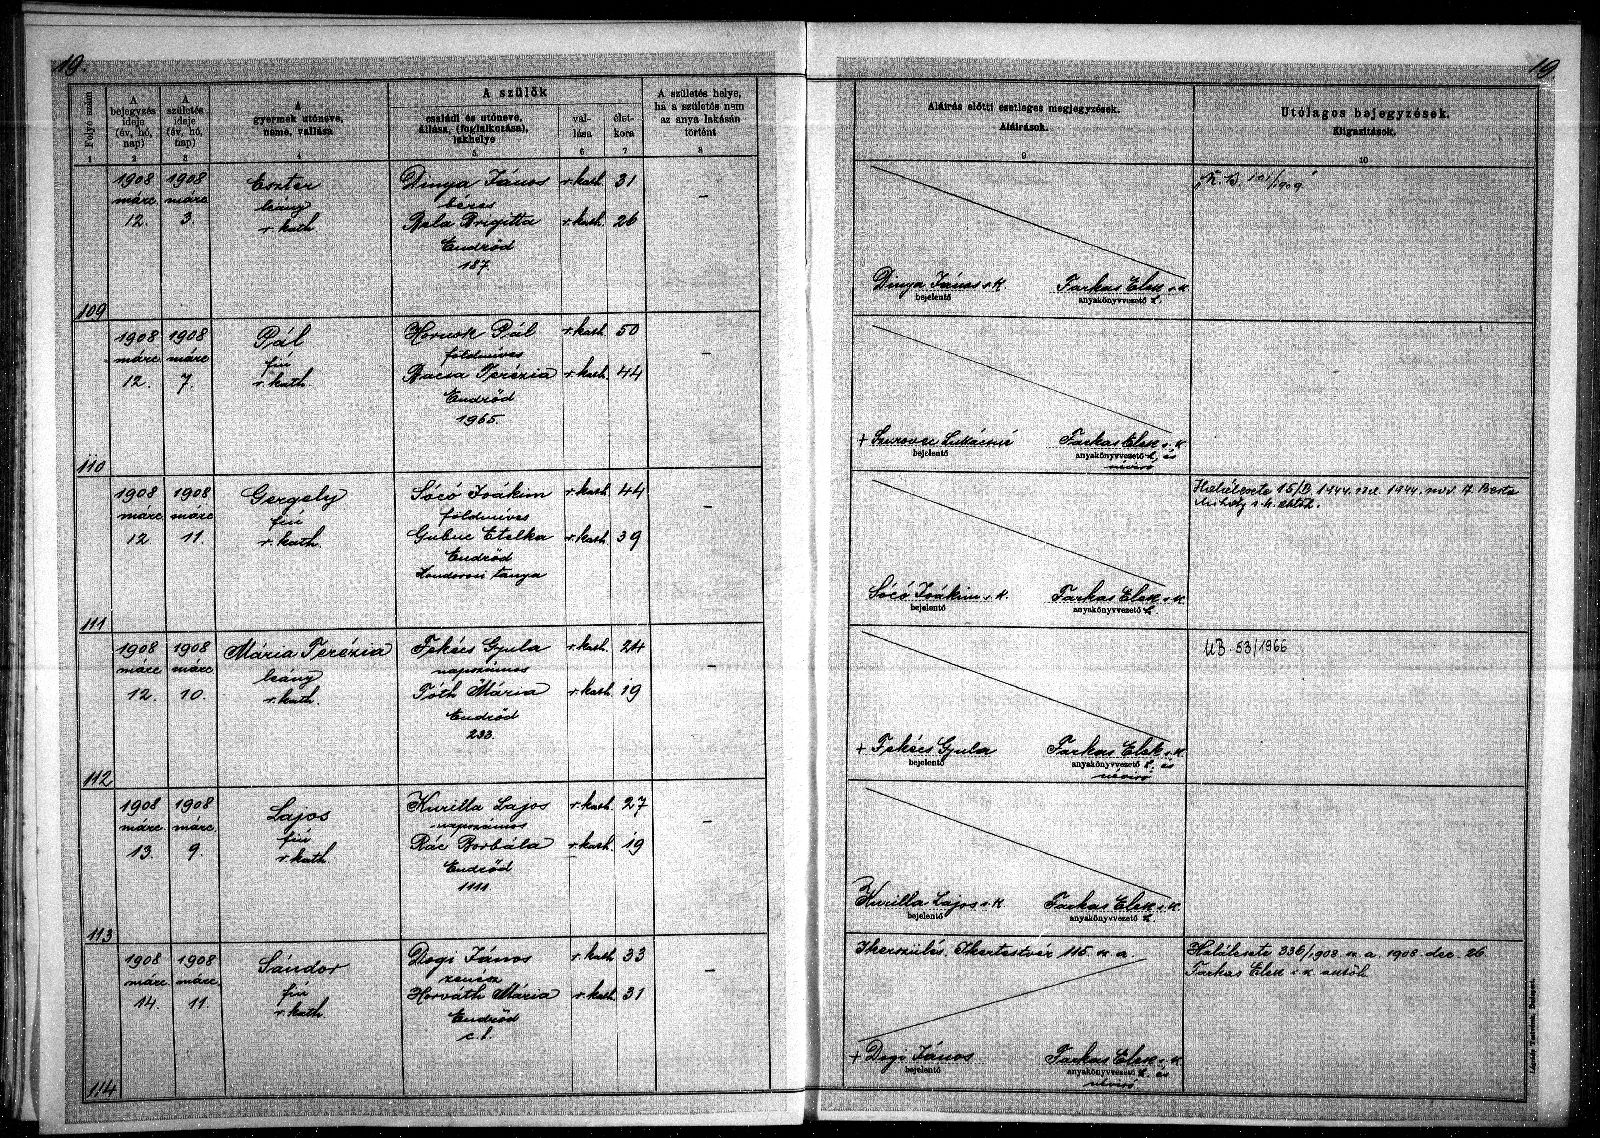 19.
19
Folyó szám
A bejegyzés ideje (év, hó, nap)
A születés ideje (év, hó, nap)
A gyermek utóneve, neme, vallása
A szülők
családi és utóneve, állása, (foglalkozása), lakhelye
vallása
életkora
A születés helye, ha a születés nem az anya lakásán történt
Aláírás előtti esetleges megjegyzések.
Aláírások.
Utólagos bejegyzések.
Kiigazítások.
1 2 3 4 5 6 7 8 9 10
109
1908 márc 12.
1908 márc 3.
Eszter
leány
r. kath
Dinya János r. kath. 31
béres
Bela Brigitta r. kath. 26
Endrőd
187.
–
Dinya János s. k.
bejelentő
Farkas Elek s. k.
anyakönyvvezető h.
110
1908 márc 12.
1908 márc 7.
Pál
fiú
r. kath.
Hornok Pál r. kath. 50
földmíves
Bacsa Terézia r. kath. 44
Endrőd
1965.
–
+ Szurovec Lukácsné
bejelentő
Farkas Elek s. k.
anyakönyvvezető h. és
névíró
111
1908 márc 12
1908 márc. 11.
Gergely
fiú
r. kath.
Sóczó Joákim r. kath. 44
földmíves
Gubuc Etelka r. kath. 39
Endrőd
Kondorosi tanya
–
Sóczó Joákim s. k.
bejelentő
Farkas Elek s. k.
anyakönyvvezető h.
15/B. 1944. 1944. nov. 7.
112
1908 márc 12.
1908 márc. 10.
Mária Terézia
leány
r. kath.
Fekécs Gyula r. kath. 24
napszámos
Tóth Mária r. kath. 19
Endrőd
233.
–
+ Fekécs Gyula
bejelentő
Farkas Elek s. k.
anyakönyvvezető h. és
névíró
UB. 53/1966
113
1908 márc. 13.
1908 márc. 9.
Lajos
fiú
r. kath
Kurilla Lajos r. kath. 27
napszámos
Rác Borbála r. kath. 19
Endrőd
1111.
–
Kurilla Lajos s. k.
bejelentő
Farkas Elek s. k.
anyakönyvvezető h.
114
1908 márc. 14.
1908 márc. 11
Sándor
fiú
r. kath.
Dogi János r. kath. 33
zenész
Horváth Mária r. kath. 31
Endrőd
c. l.
–
Ikerszülés. Ikertestvér 115. sz. a.
+ Dogi János
bejelentő
Farkas Elek s. k.
anyakönyvvezető h. és
névíró
Haláleset 336/1908. sz. a. 1908. dec. 26.
Farkas Elek s. k. anyak.